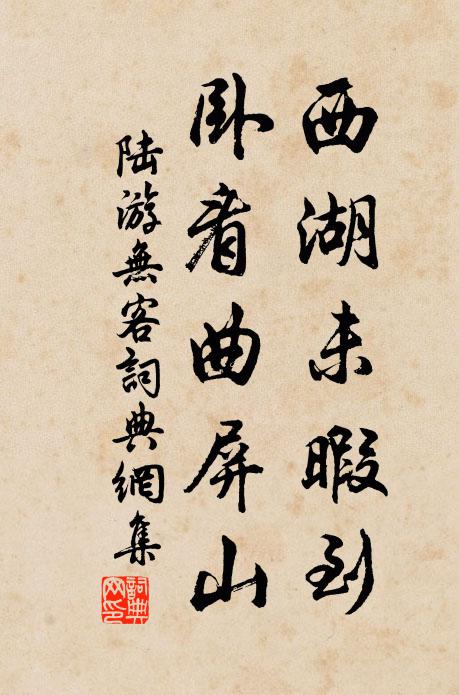 西湖未暇到
卧看曲屏山
陆游無客詞典網集
詞典網印